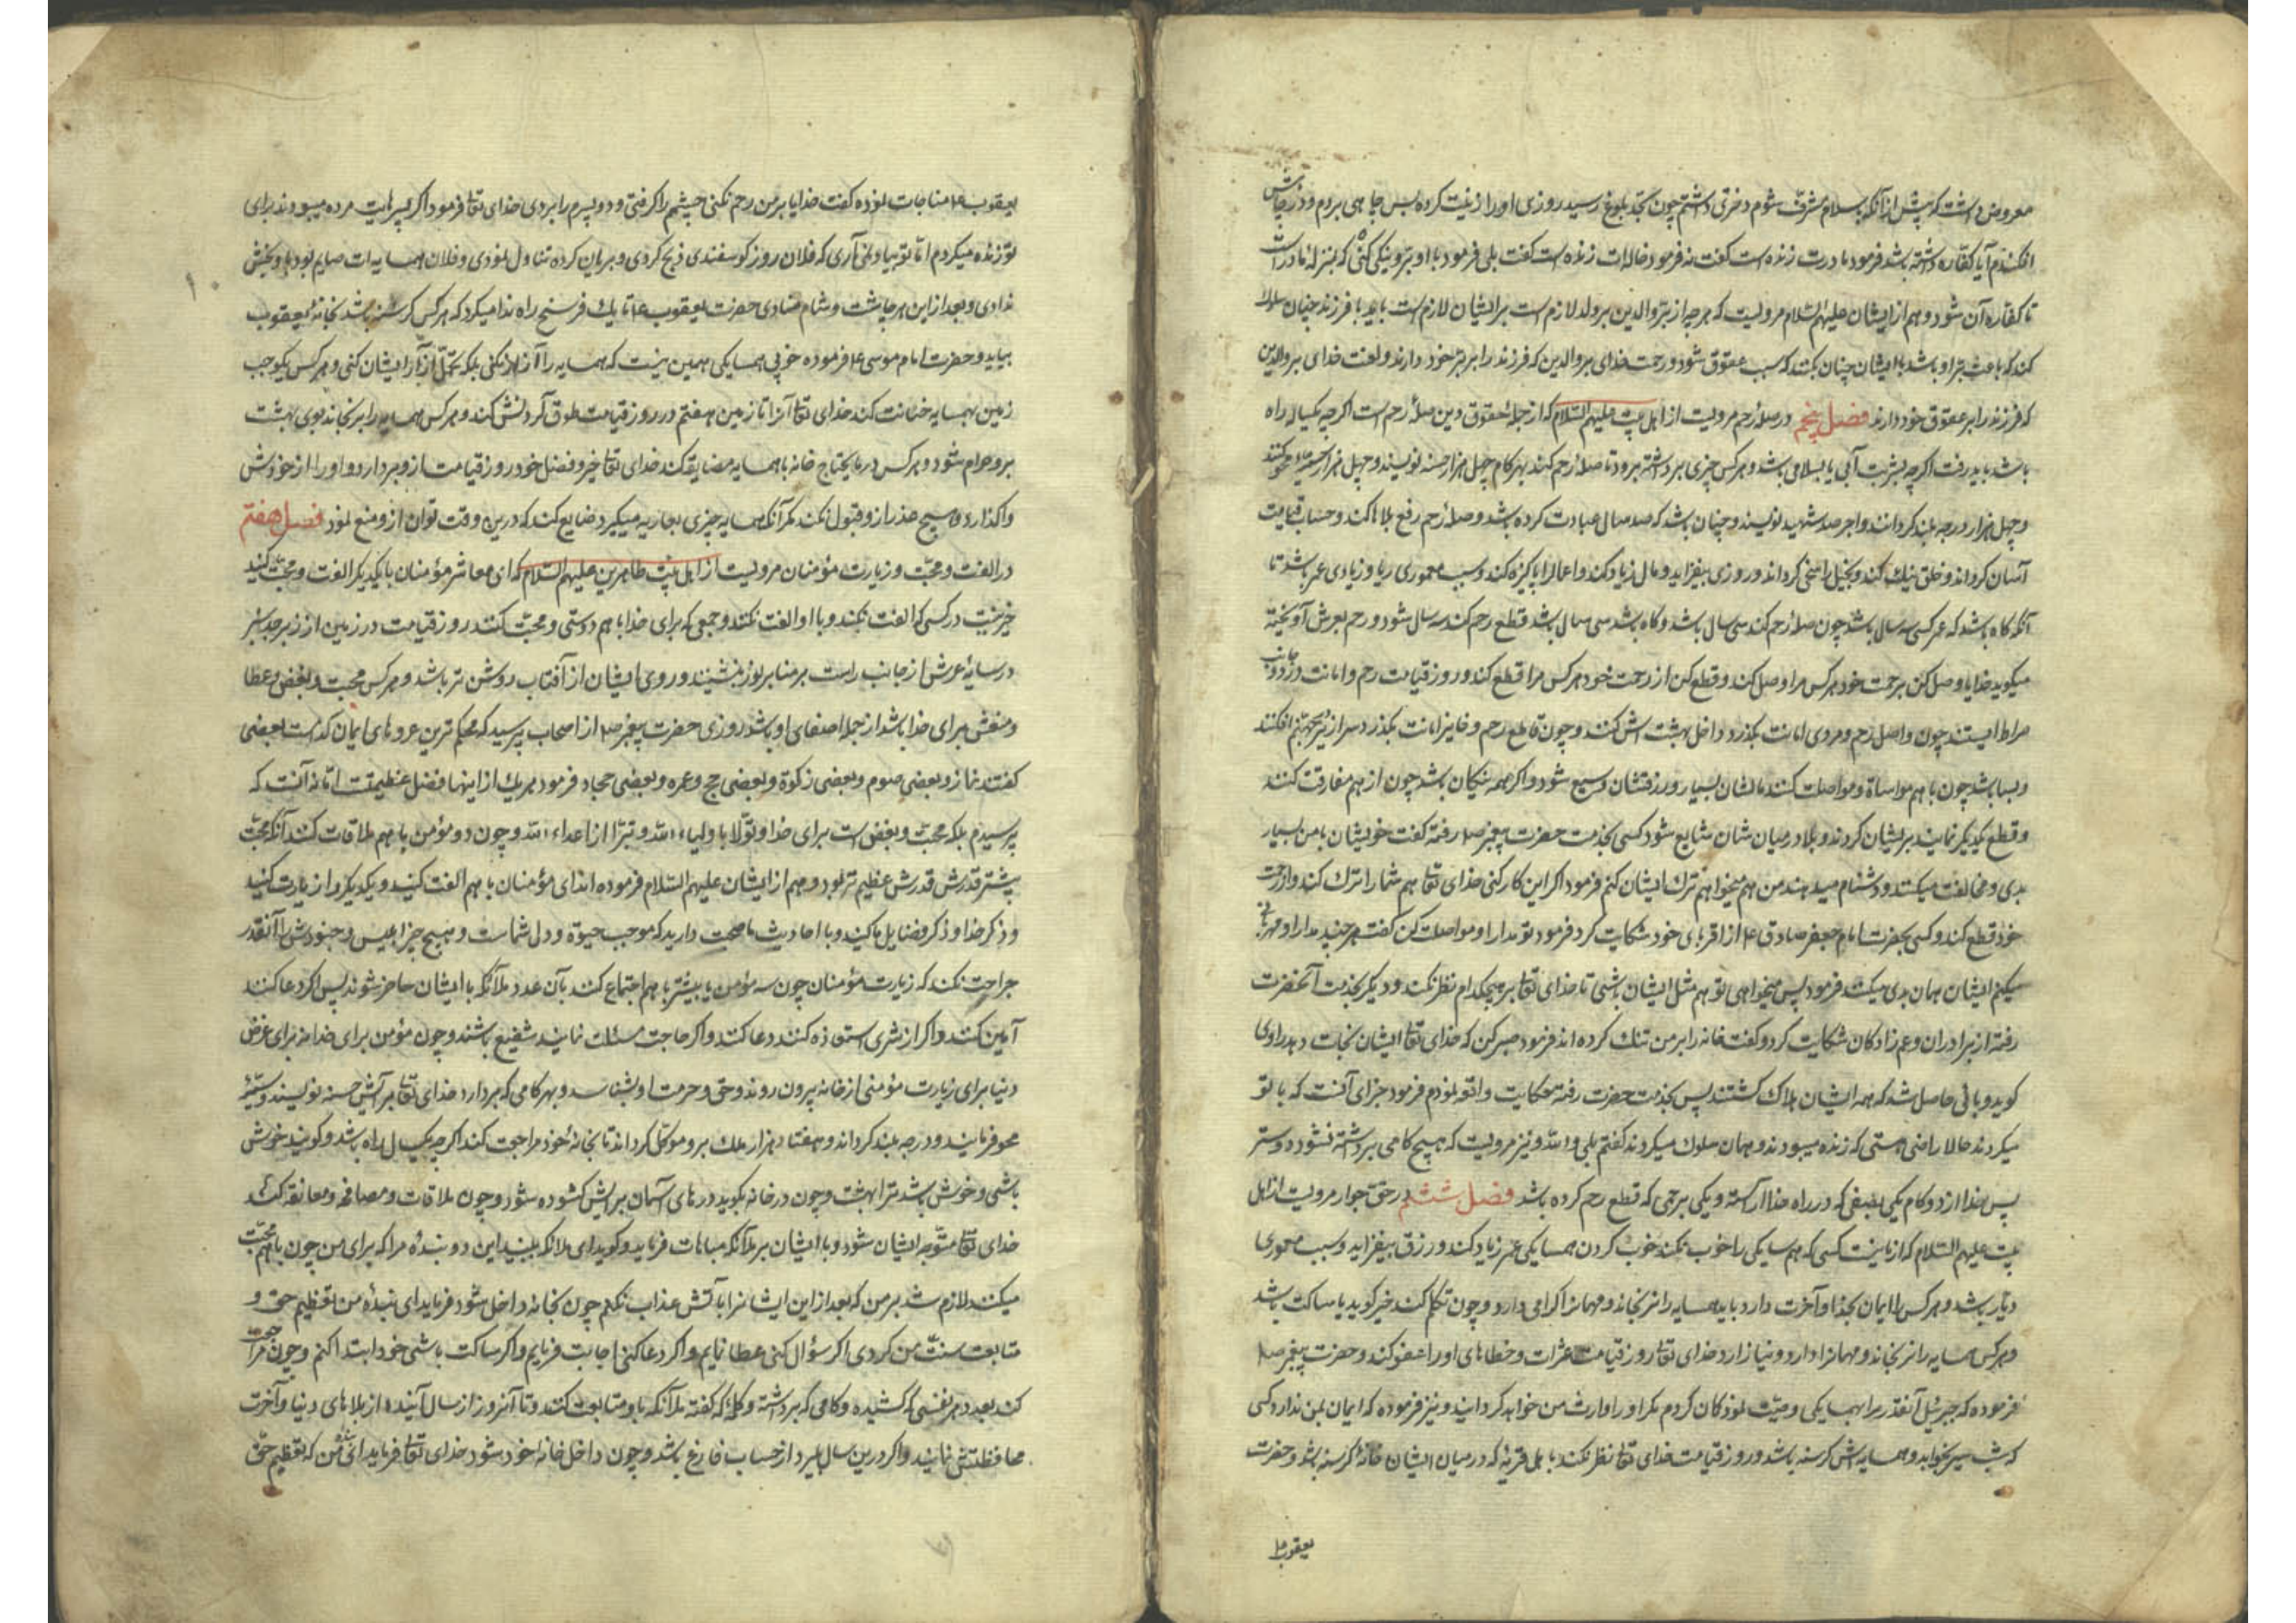 معروض داشت که پیش از آنکه باسلام مشرف شوم دختری داشتم چون بحد بلوغ رسید روزی اورا زینت کرده بسر چاهی بردم و در چاهش
افکندم آیا کفاره داشته باشد فرمود مادرت زنده است گفت نه فرمود خاله‌ات زنده است گفت بلی فرمود با او برّ و نیکی کنی که بمنزلهٔ مادر است
تا کفاره آن شود و هم از ایشان علیهم السلام مرویست که هرچه از برّ والدین بر ولد لازم است بر ایشان لازم است باید با فرزند چنان سلوک
کند که باعث برّ او باشد با ایشان چنان نکنند که سبب عقوق شود و رحمت خدای بر والدین که فرزند را بر برّ خود دارند و لعنت خدای بر والدین
که فرزند را بر عقوق خود دارند فصل پنجم در صلهٔ رحم مرویست از اهل بیت علیهم السلام که از جملهٔ حقوق دین صلهٔ رحم است اگرچه یکساله راه
باشد باید رفت اگرچه بشربت آبی یا بسلامی باشد و هرکس چیزی برداشته برود تا صلهٔ رحم کند بهر کام چهل هزار حسنه نویسند و چهل هزار سیئه محو کنند
و چهل هزار درجه بلند گردانند و اجر صد شهید نویسند و چنان باشد که صد سال عبادت کرده باشد و صلهٔ رحم رفع بلاها کند و حساب قیامت
آسان گرداند و خلق نیک کند و بخیل را سخی گرداند و روزی بیفزاید و مال زیاد کند و اعمال را پاکیزه کند و سبب معموری دیار و زیادی عمر باشد تا
آنکه گاه باشد که عمر کسی سه سال باشد چون صلهٔ رحم کند سی سال باشد و گاه باشد سی سال باشد قطع رحم کند سه سال شود و رحم بعرش آویخته
میگوید خدایا وصل کن برحمت خود هرکس مرا وصل کند و قطع کن از رحمت خود هرکس مرا قطع کند و روز قیامت رحم و امانت در دو جانب
صراط ایستند چون واصل رحم و مودی امانت بگذرد داخل بهشتش کنند و چون قاطع رحم و خاین امانت بگذرد سرازیر بجهنم افکنند
و بسا باشد چون با هم مواساة و مواصلت کنند مالشان بسیار و رزقشان وسیع شود و اگر همه نیکان باشند چون از هم مفارقت کنند
و قطع یکدیگر نمایند پریشان گردند و بلا در میان شان شایع شود کسی بخدمت حضرت پیغمبر صلا رفته گفت خویشان با من بسیار
بدی و مخالفت میکنند و دشنام میدهند من هم میخواهم ترک ایشان کنم فرمود اگر این کار کنی خدای تعا هم شما را ترک کند و از رحمت
خود قطع کند و کسی بحضرت امام جعفر صادق ع از اقربای خود شکایت کرد فرمود تو مدارا و مواصلت کن گفت هرچند مدارا و مهربانی
میکنم ایشان همان بدی میکنند فرمود پس میخواهی تو هم مثل ایشان باشی تا خدای تعا بر هیچکدام نظر نکند و دیگر بخدمت آنحضرت
رفته از برادران و عم زادکان شکایت کرد و گفت خانه را بر من تنک کرده‌اند فرمود صبر کن که خدای تعا ایشان نجات دهد راوی
گوید وبائی حاصل شد که همه ایشان هلاک گشتند پس بخدمت حضرت رفته حکایت واقعه نمودم فرمود جزای آنست که با تو
میکردند حالا راضی هستی که زنده میبودند و همان سلوک میکردند گفتم بلی و الله و نیز مرویست که هیچ کامی برداشته نشود دوستر
پس خدا از دو کام یکی بصفی که در راه خدا آراسته و یکی برحمی که قطع رحم کرده باشد فصل ششم در حق جوار مرویست از اهل
بیت علیهم السلام که از ما نیست کسی که همسایکی را خوب نکند خوب کردن همسایکی عمر زیاد کند و رزق بیفزاید و سبب معموری
دیار باشد و هرکس را ایمان بخدا و آخرت دارد باید همسایه را نرنجاند و مهمانرا کرامی دارد و چون تکلم کند خیر گوید یا ساکت باشد
و هرکس همسایه را نرنجاند و مهمانرا دارد و نیازارد خدای تعا روز قیامت عثرات و خطاهای اورا عفو کند و حضرت پیغمبر صلا
فرموده که جبرئیل آنقدر مرا بهمسایکی وصیت نمود کمان کردم مکر اورا وارث من خواهد گردانید و نیز فرموده که ایمان بمن ندارد کسی
که شب سیر بخوابد و همسایه‌اش گرسنه باشد و روز قیامت خدای تعا نظر نکند با اهل قریه که در میان ایشان خانهٔ گرسنه باشد و حضرت
یعقوب ع
یعقوب ع مناجات نموده گفت خدایا بر من رحم نکنی چشمم را گرفتی و دو پسرم را بردی خدای تعا فرمود اگر پسرهایت مرده میبودند برای
تو زنده میکردم اما تو بیاد نمی‌آری که فلان روز گوسفندی ذبح کردی و بریان کرده تناول نمودی و فلان همسایه‌ات صایم بود باو بخش
ندادی و بعد از این هر چاشت و شام منادی حضرت یعقوب ع تا یک فرسخ راه ندا میکرد که هرکس گرسنه باشد بخانهٔ یعقوب
بیاید و حضرت امام موسی ع فرموده خوبی همسایکی همین نیست که همسایه را آزار نکنی بلکه تحمل آزار ایشان کنی و هرکس یکوجب
زمین بهمسایه خیانت کند خدای تعا آنرا تا زمین هفتم در روز قیامت طوق گردنش کند و هرکس همسایه را برنجاند بوی بهشت
برو حرام شود و هرکس در مایحتاج خانه با همسایه مضایقه کند خدای تعا خیر و فضل خود روز قیامت ازو بردارد و اورا از خودش
واگذارد و هیچ عذر ازو قبول نکند مگر آنکه همسایه چیزی بعاریه میگیرد ضایع کند که درین وقت توان ازو منع نمود فصل هفتم
در الفت و محبت و زیارت مؤمنان مرویست از اهل بیت طاهرین علیهم السلام که ای معاشر مؤمنان با یکدیگر الفت و محبت کنید
خیر نیست در کسی که الفت نکند و با او الفت نکنند و جمعی که برای خدا با هم دوستی و محبت کنند روز قیامت در زمین از زبرجد سبز
در سایهٔ عرش از جانب راست بر منابر نور بنشینند و روی ایشان از آفتاب روشن تر باشد و هرکس محبت و بغض و عطا
و منعش برای خدا باشد از جمله اصفیای او باشد روزی حضرت پیغمبر صلا از اصحاب پرسید که محکم ترین عروهای ایمان کدامست بعضی
گفتند نماز و بعضی صوم و بعضی زکوة و بعضی حج و عمره و بعضی جهاد فرمود هریک از اینها فضل عظیمست اما نه آنست که
پرسیدم بلکه محبت و بغض است برای خدا و تولا با ولیاء الله و تبرّا از اعداء الله و چون دو مؤمن با هم ملاقات کنند آنکه محبت
بیشتر قدرش قدرش عظیم تر بود و هم از ایشان علیهم السلام فرموده‌اند ای مؤمنان با هم الفت کنید و یکدیگر را زیارت کنید
و ذکر خدا و ذکر فضایل ما کنید و با احادیث ما صحبت دارید که موجب حیوة و دل شماست و هیچ چیز ابلیس و جنودش را آنقدر
جراحت نکند که زیارت مؤمنان چون سه مؤمن یا بیشتر با هم اجتماع کنند بآن عدد ملائکه با ایشان حاضر شوند پس اگر دعا کنند
آمین کنند و اگر از شری استعاذه کنند دعا کنند و اگر حاجت مسئلت نمایند شفیع باشند و چون مؤمن برای خدا نه برای غرض
دنیا برای زیارت مؤمنی از خانه بیرون روند و حق و حرمت او بشناسد و بهر کامی که بردارد خدای تعا برایش حسنه نویسند و سیئهٔ
محو فرمایند و درجه بلند گرداند و هفتاد هزار ملک برو موکل گرداند تا بخانهٔ خود مراجعت کند اگرچه یکساله راه باشد و گویند خوش
باشی و خوش باشد ترا بهشت و چون در خانه بکوبد درهای آسمان برایش گشوده شود و چون ملاقات و مصافحه و معانقه کنند
خدای تعا متوجه ایشان شود و با ایشان بر ملائکه مباهات فرماید و گوید ای ملائکه ببینید این دو بندهٔ مرا که برای من چون با هم محبت
میکنند لازم شد بر من که بعد از این ایشانرا بآتش عذاب نکنم چون بخانه داخل شود فرماید ای بندهٔ من تعظیم حق و
متابعت سنت من کردی اگر سؤال کنی عطا نمایم و اگر دعا کنی اجابت فرمایم و اگر ساکت باشی خود ابتدا کنم و چون مراجعت
کند بعدد هر نفسی که کشیده و کامی که برداشته و کلمهٔ که گفته ملائکه باو متابعت کنند و تا آنروز از سال آینده از بلاهای دنیا و آخرت
محافظتش نمایند و اگر درین سال بمیرد از حساب فارغ باشد و چون داخل خانه خود شود خدای تعا فرماید ای بندهٔ من که تعظیم حق